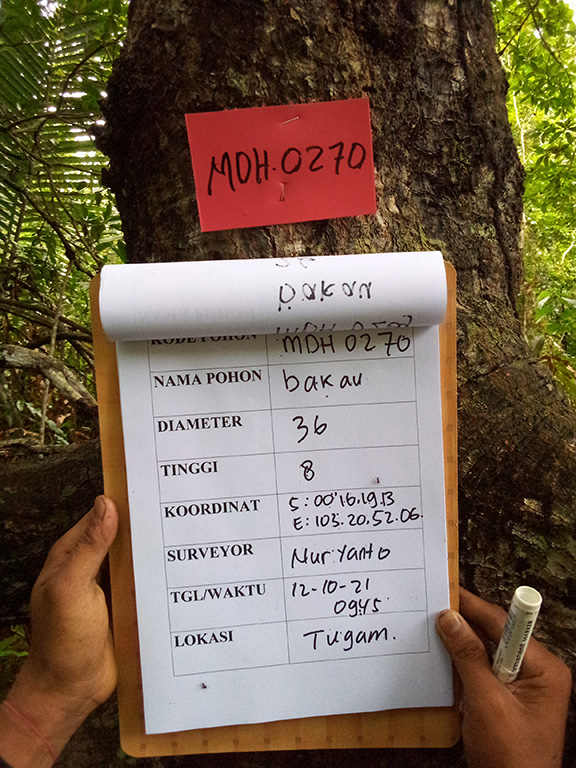 MDH.0270
bakau
KODE POHON MDH 0270
NAMA POHON bakau
DIAMETER 36
TINGGI 8
KOORDINAT S: 00°16.19.13
E: 103.20.52.06.
SURVEYOR Nuryanto
TGL/WAKTU 12-10-21
0945
LOKASI Tugam.